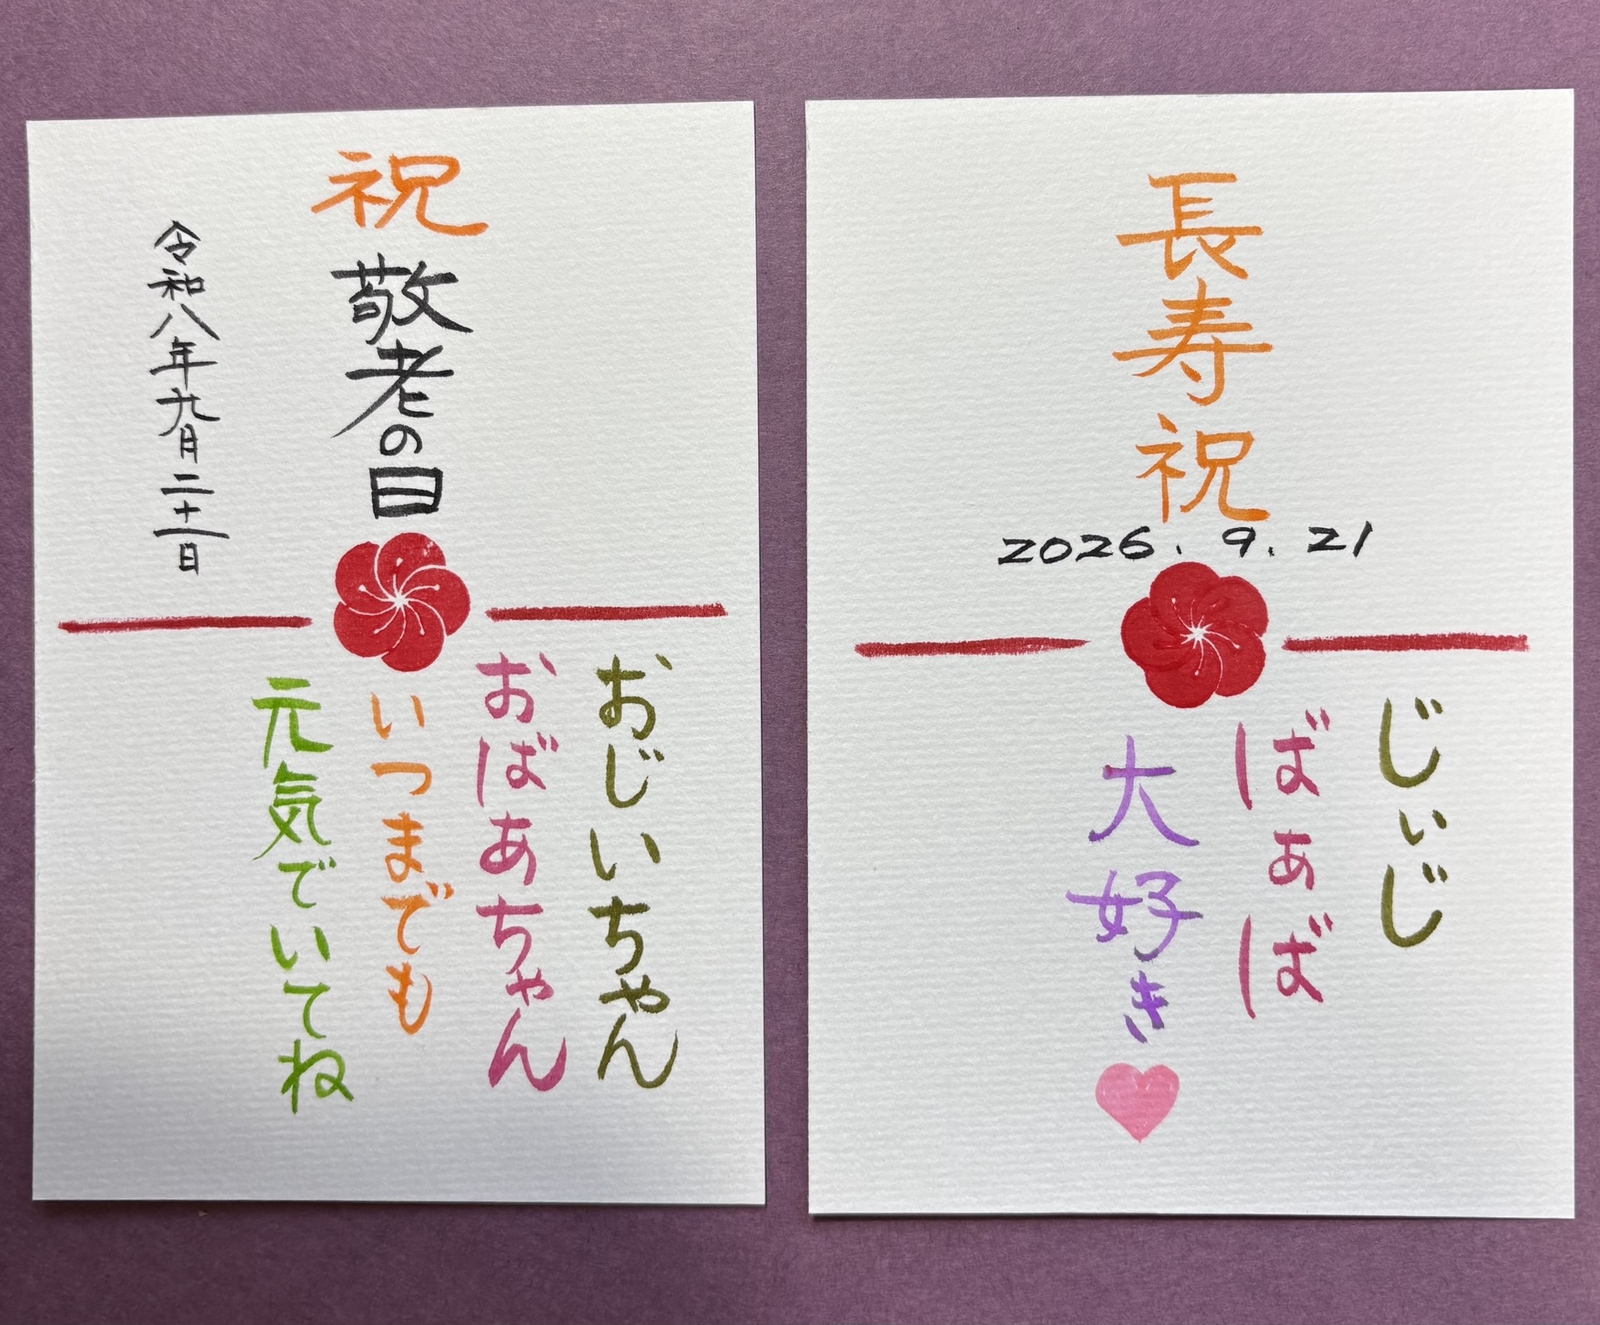 祝
敬老の日
令和八年九月二十一日
おじいちゃん
おばあちゃん
いつまでも
元気でいてね
長寿祝
2026.9.21
じぃじ
ばぁば
大好き